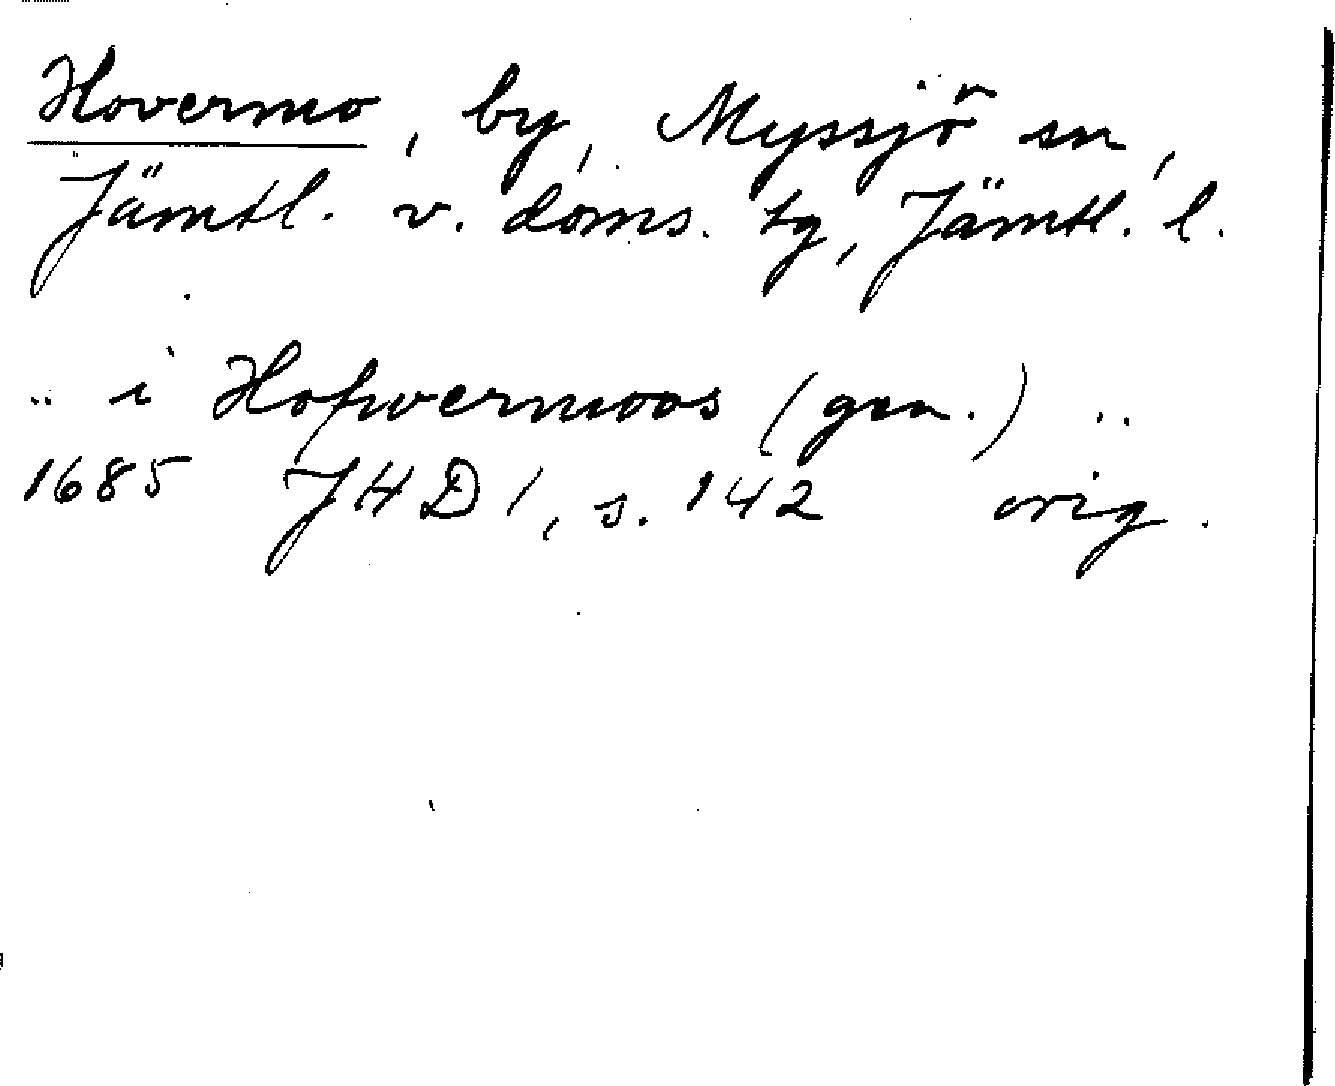 Hovermo, by, Myssjö sn,
Jämtl. v. doms. tg, Jämtl. l.
.. i Hofwermoos (gen.) ..
1685 JHD 1, s. 142 orig.